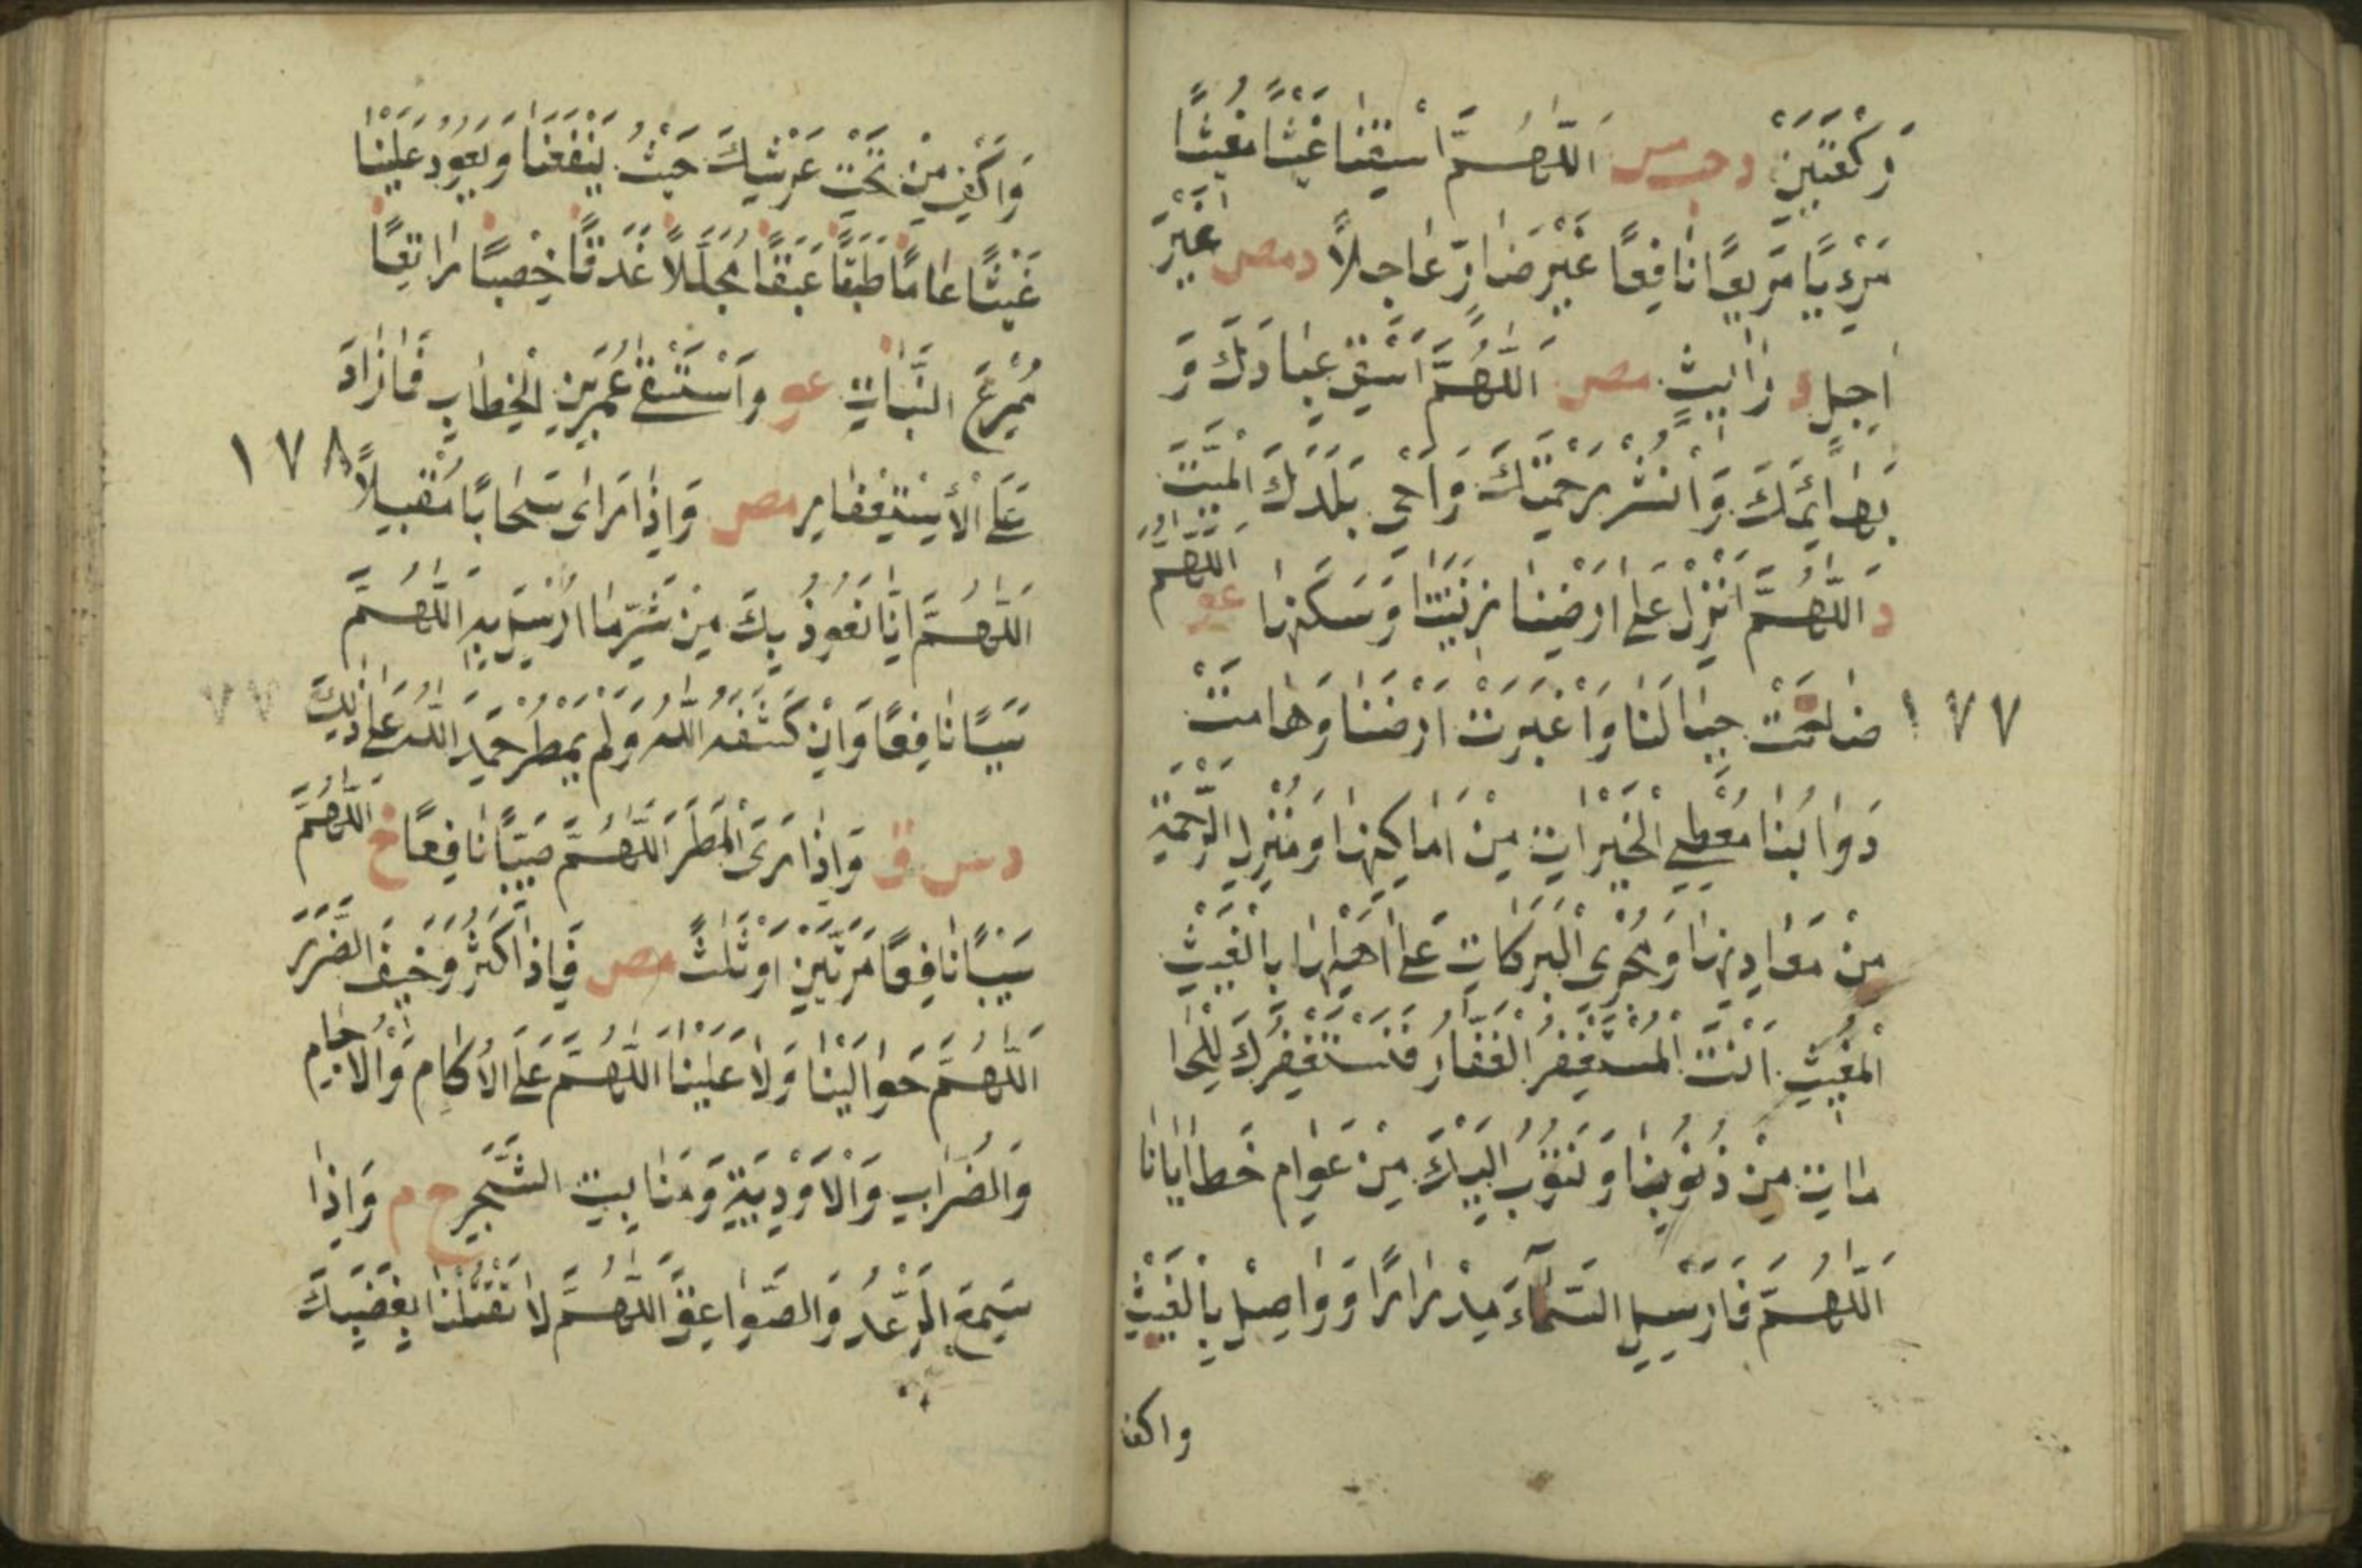 رَكْعَتَيْنِ د حب مس اَللّٰهُمَّ اسْقِنَا غَيْثًا مُغِيثًا
مَرِيًا مَرِيعًا نَافِعًا غَيْرَ ضَارٍّ عَاجِلًا د مص غَيْرَ
اٰجِلٍ د رَايِثٍ مص اَللّٰهُمَّ اسْقِ عِبَادَكَ وَ
بَهَائِمَكَ وَانْشُرْ رَحْمَتَكَ وَاَحْيِ بَلَدَكَ الْمَيِّتَ
د اَللّٰهُمَّ اَنْزِلْ عَلٰى اَرْضِنَا زِينَتَهَا وَسَكَنَهَا عو اَللّٰهُمَّ
ضَاحَتْ جِبَالُنَا وَاغْبَرَّتْ اَرْضُنَا وَهَامَتْ ١٧٧
دَوَابُّنَا مُعْطِي الْخَيْرَاتِ مِنْ اَمَاكِنِهَا وَمُنْزِلَ الرَّحْمَةِ
مِنْ مَعَادِنِهَا وَمُجْرِيَ الْبَرَكَاتِ عَلٰى اَهْلِهَا بِالْغَيْثِ
الْمُغِيثِ اَنْتَ الْمُسْتَغْفَرُ الْغَفَّارُ فَنَسْتَغْفِرُكَ لِلْحَا
مَاتِ مِنْ ذُنُوبِنَا وَنَتُوبُ اِلَيْكَ مِنْ عَوَامِ خَطَايَانَا
اَللّٰهُمَّ فَاَرْسِلِ السَّمَاءَ مِدْرَارًا وَوَاصِلْ بِالْغَيْثِ
واكف
وَاكِفِ مِنْ تَحْتِ عَرْشِكَ حَيْثُ يَنْفَعُنَا وَيَعُودُ عَلَيْنَا
غَيْثًا عَامًا طَبَقًا غَبَقًا مُجَلِّلًا غَدَقًا خِصْبًا رَاتِعًا
مُمْرِعَ النَّبَاتِ عو وَاسْتَسْقٰى عُمَرُ بْنُ الْخَطَّابِ فَمَا زَادَ
عَلَى الْاِسْتِغْفَارِ مص وَاِذَا رَاٰى سَحَابًا مُقْبِلًا ١٧٨
اَللّٰهُمَّ اِنَّا نَعُوذُ بِكَ مِنْ شَرِّ مَا اُرْسِلَ بِهِ اَللّٰهُمَّ
سَيْبًا نَافِعًا وَاِنْ كَشَفَهُ اللّٰهُ وَلَمْ يَمْطُرْ حَمِدَ اللّٰهَ عَلٰى ذٰلِكَ ٧٧
د س ق وَاِذَا رَاَى الْمَطَرَ اَللّٰهُمَّ صَيِّبًا نَافِعًا خ اَللّٰهُمَّ
سَيْبًا نَافِعًا مَرَّتَيْنِ اَوْ ثَلٰثًا مص فَاِذَا كَثُرَ وَخِيفَ الضَّرَرُ
اَللّٰهُمَّ حَوَالَيْنَا وَلَا عَلَيْنَا اَللّٰهُمَّ عَلَى الْاٰكَامِ وَالْاٰجَامِ
وَالضِّرَابِ وَالْاَوْدِيَةِ وَمَنَابِتِ الشَّجَرِ خ م وَاِذَا
سَمِعَ الرَّعْدَ وَالصَّوَاعِقَ اَللّٰهُمَّ لَا تَقْتُلْنَا بِغَضَبِكَ